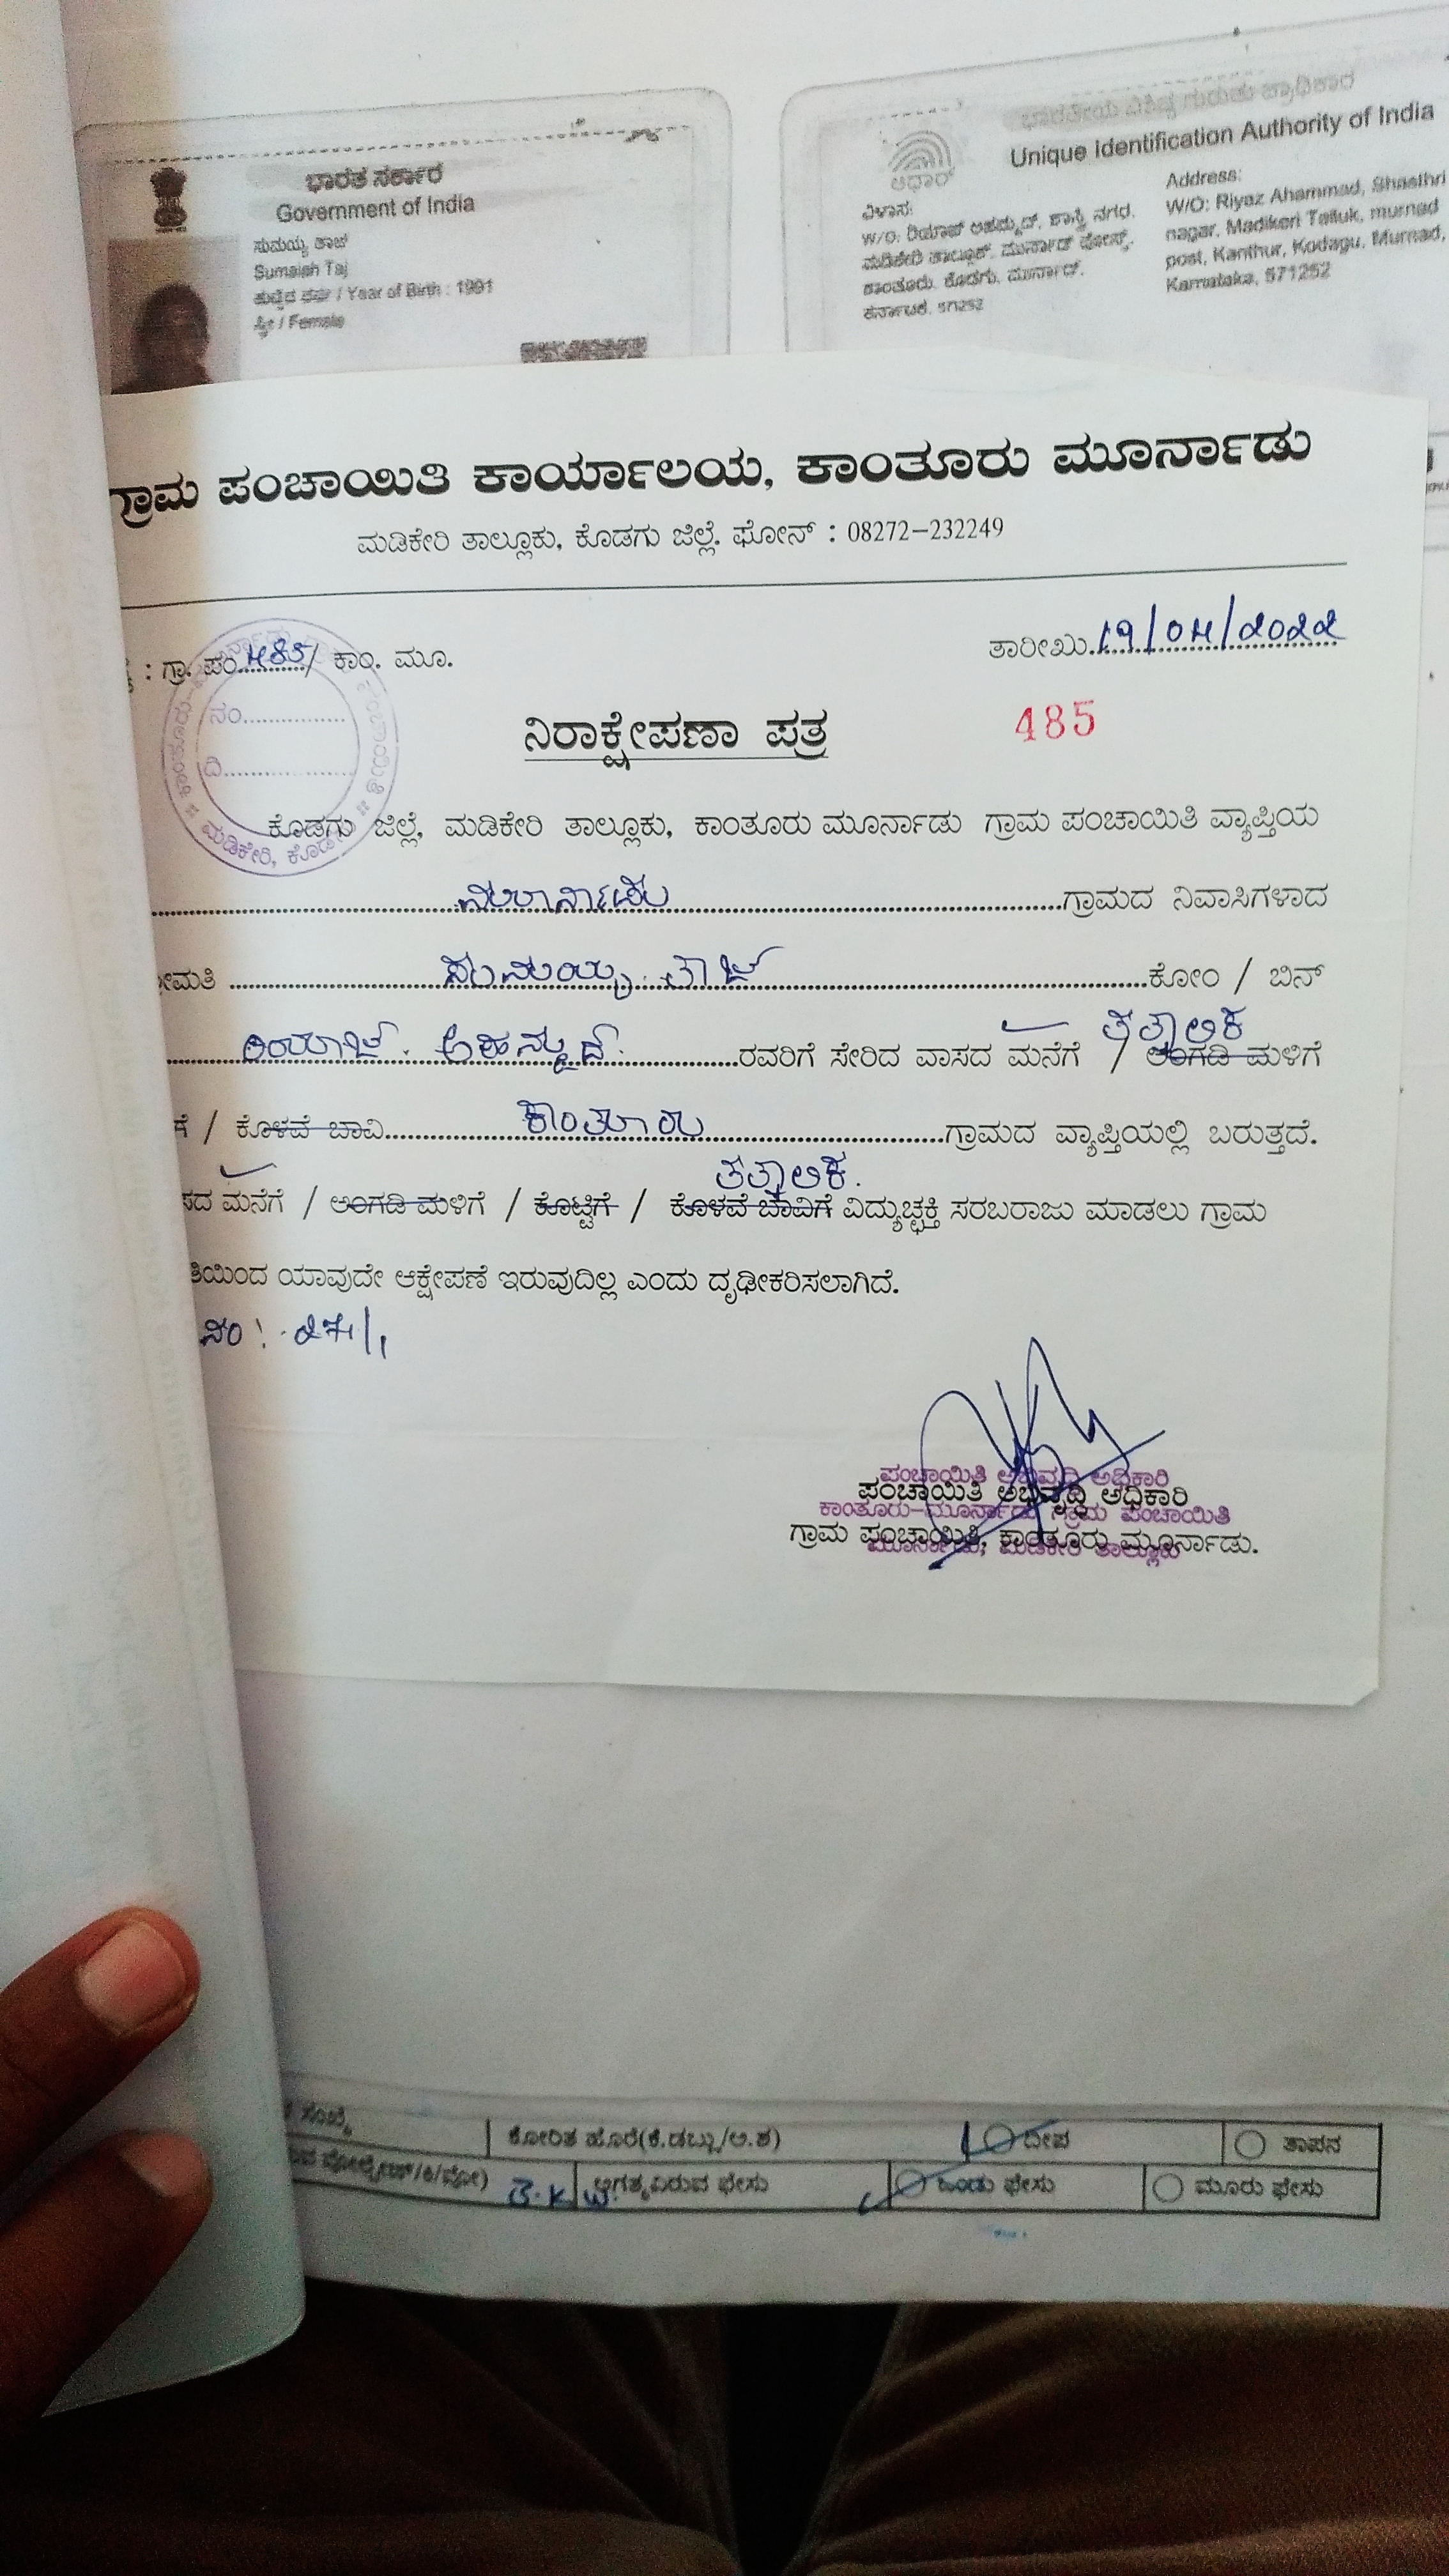 ಭಾರತ ಸರ್ಕಾರ
Government of India
ಸುಮಯ್ಯ ತಾಜ್
Sumaiah Taj
ಹುಟ್ಟಿದ ವರ್ಷ / Year of Birth : 1991
ಸ್ತ್ರೀ / Female
ಭಾರತೀಯ ವಿಶಿಷ್ಟ ಗುರುತು ಪ್ರಾಧಿಕಾರ
Unique Identification Authority of India
ಆಧಾರ್
ವಿಳಾಸ:
W/O: ರಿಯಾಜ್ ಅಹಮ್ಮದ್, ಶಾಸ್ತ್ರಿ ನಗರ,
ಮಡಿಕೇರಿ ತಾಲ್ಲೂಕ್, ಮುರ್ನಾಡ್ ಪೋಸ್ಟ್,
ಕಾಂತೂರು, ಕೊಡಗು, ಮೂರ್ನಾಡ್,
ಕರ್ನಾಟಕ, 571252
Address:
W/O: Riyaz Ahammad, Shasthri
nagar, Madikeri Talluk, murnad
post, Kanthur, Kodagu, Murnad,
Karnataka, 571252
ಗ್ರಾಮ ಪಂಚಾಯಿತಿ ಕಾರ್ಯಾಲಯ, ಕಾಂತೂರು ಮೂರ್ನಾಡು
ಮಡಿಕೇರಿ ತಾಲ್ಲೂಕು, ಕೊಡಗು ಜಿಲ್ಲೆ. ಫೋನ್ : 08272-232249
: ಗ್ರಾ. ಪಂ. ೪೮೫/ ಕಾಂ. ಮೂ. ತಾರೀಖು. ೧೯/೦೪/೨೦೨೨
ನಂ..................
ದಿ..................
ಮಡಿಕೇರಿ, ಕೊಡಗು
ನಿರಾಕ್ಷೇಪಣಾ ಪತ್ರ 485
ಕೊಡಗು ಜಿಲ್ಲೆ, ಮಡಿಕೇರಿ ತಾಲ್ಲೂಕು, ಕಾಂತೂರು ಮೂರ್ನಾಡು ಗ್ರಾಮ ಪಂಚಾಯಿತಿ ವ್ಯಾಪ್ತಿಯ
ಮೂರ್ನಾಡು ಗ್ರಾಮದ ನಿವಾಸಿಗಳಾದ
ಮತಿ ಸುಮಯ್ಯ ತಾಜ್ ಕೋಂ / ಬಿನ್
ರಿಯಾಜ್. ಅಹಮ್ಮದ್. ರವರಿಗೆ ಸೇರಿದ ವಾಸದ ಮನೆಗೆ / ತತ್ಕಾಲಿಕ ಅಂಗಡಿ ಮಳಿಗೆ
ಕೆ / ಕೊಳವೆ ಬಾವಿ ಕಾಂತೂರು ಗ್ರಾಮದ ವ್ಯಾಪ್ತಿಯಲ್ಲಿ ಬರುತ್ತದೆ.
ತತ್ಕಾಲಿಕ.
ಸದ ಮನೆಗೆ / ಅಂಗಡಿ ಮಳಿಗೆ / ಕೊಟ್ಟಿಗೆ / ಕೊಳವೆ ಬಾವಿಗೆ ವಿದ್ಯುಚ್ಛಕ್ತಿ ಸರಬರಾಜು ಮಾಡಲು ಗ್ರಾಮ
ತಿಯಿಂದ ಯಾವುದೇ ಆಕ್ಷೇಪಣೆ ಇರುವುದಿಲ್ಲ ಎಂದು ದೃಢೀಕರಿಸಲಾಗಿದೆ.
ನಂ :
ಪಂಚಾಯಿತಿ ಅಭಿವೃದ್ಧಿ ಅಧಿಕಾರಿ
ಪಂಚಾಯಿತಿ ಅಭಿವೃದ್ಧಿ ಅಧಿಕಾರಿ
ಕಾಂತೂರು-ಮೂರ್ನಾಡು ಗ್ರಾಮ ಪಂಚಾಯಿತಿ
ಗ್ರಾಮ ಪಂಚಾಯಿತಿ, ಕಾಂತೂರು ಮೂರ್ನಾಡು.
ಮೂರ್ನಾಡು, ಮಡಿಕೇರಿ ತಾಲ್ಲೂಕು
ಸಂಖ್ಯೆ ಕೋರಿತ ಹೊರೆ(ಕೆ.ಡಬ್ಲ್ಯು/ಅ.ಶ) ದೀಪ ತಾಪನ
ಅಗತ್ಯವಿರುವ ಫೇಸು ಒಂಡು ಫೇಸು ಮೂರು ಫೇಸು